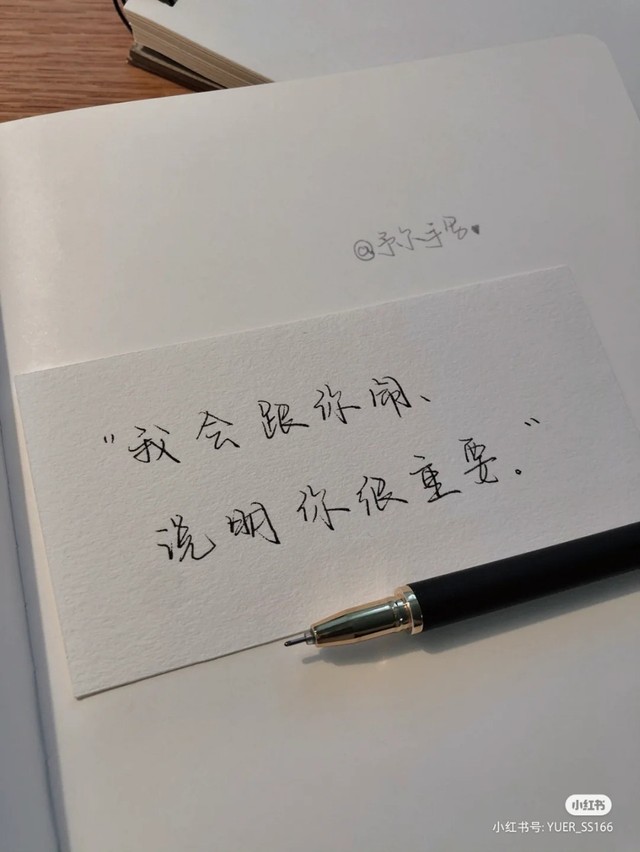 @予尔手写
"我会跟你闹、
说明你很重要。"
小红书
小红书号: YUER_SS166